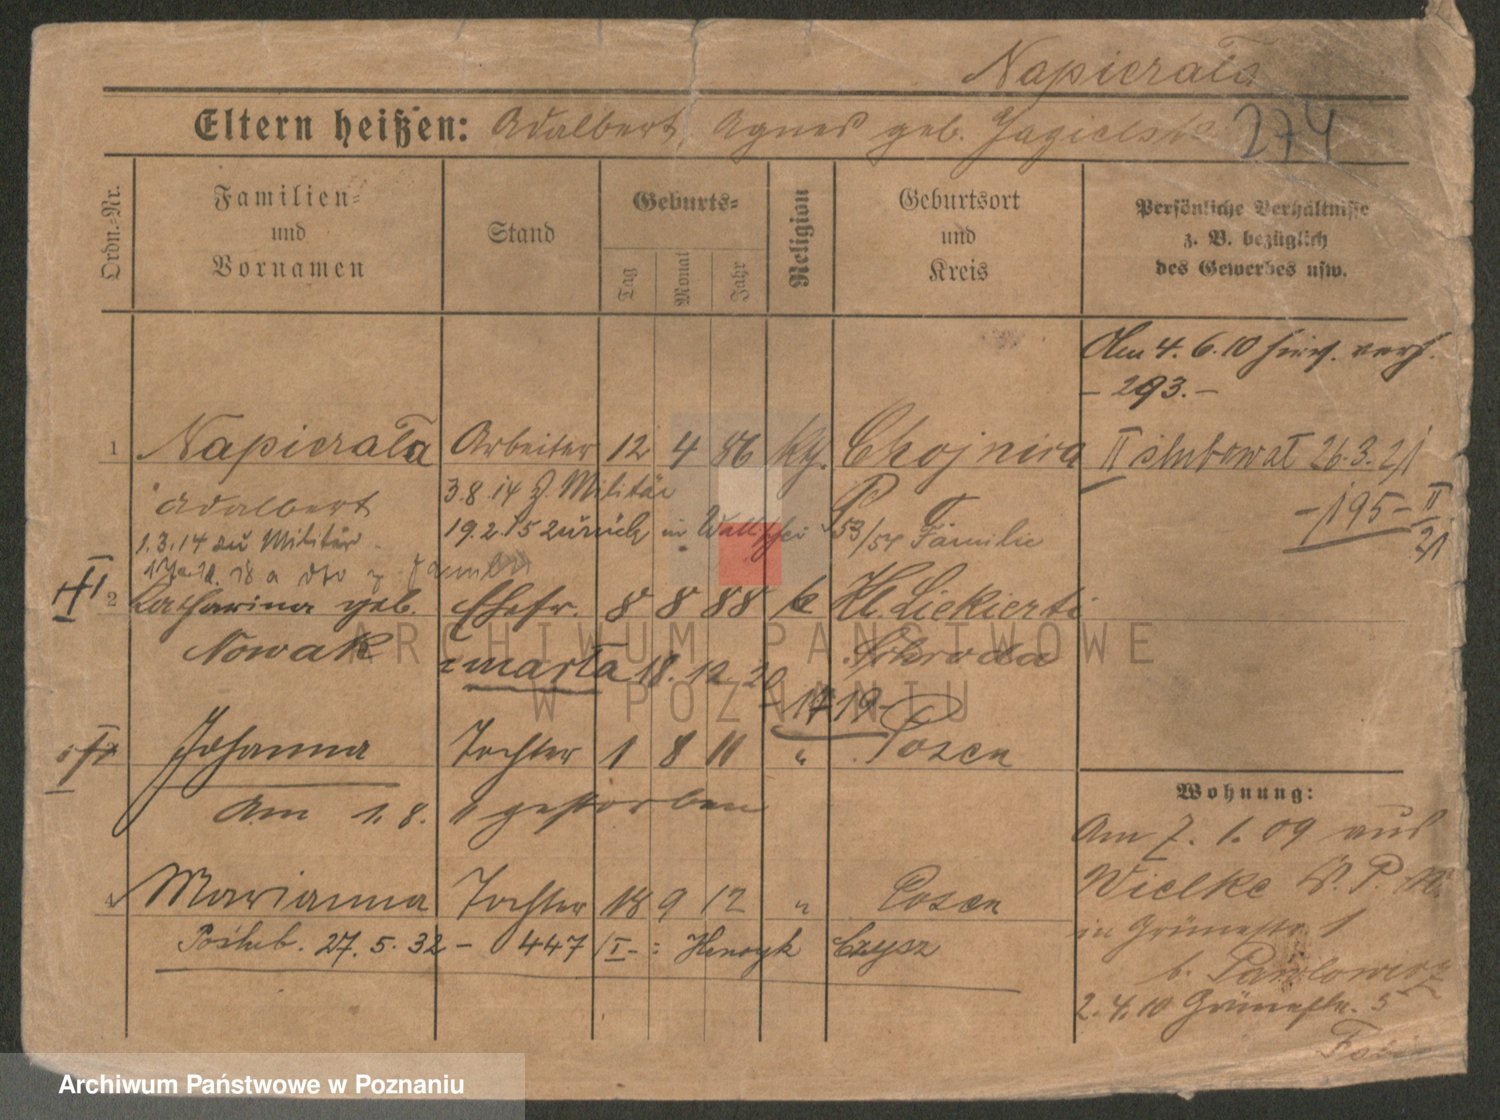 Napierała
Eltern heißen: Adalbert, Agnes geb. Jagielska 274
Ordn.=Nr.
Familien=
und
Vornamen
Stand
Geburts=
Tag
Monat
Jahr
Religion
Geburtsort
und
Kreis
Persönliche Verhältnisse
z. B. bezüglich
des Gewerbes usw.
Am 4. 6. 10 hier verh.
- 293. -
1 Napierała Arbeiter 12 4 86 kg. Chojnica II ślubował 26.3.21
Adalbert 3.8.14 z. Militär P
-195- II
21
1.3.14 zu Militär 19.2.15 zurück in 53/54 Familie
18 a
2 Katharina geb. Ehefr. 8 8 88 k Kl. Siekierki
Nowak zmarła 18. 12 20 Schroda
- 1719 -
Johanna Tochter 1 8 11 " Posen
Am 1. 8. 11 gestorben
4 Marianna Tochter 18 9 12 " Posen
Poślub. 27. 5. 32 - 447 / I - : Henryk Czysz
Wohnung:
Am 7. 1. 09 aus
Wielke
in Grünestr. 1
b. Pawlowicz
2. 4. 10 Grünestr. 5
ARCHIWUM PAŃSTWOWE
W POZNANIU
Archiwum Państwowe w Poznaniu